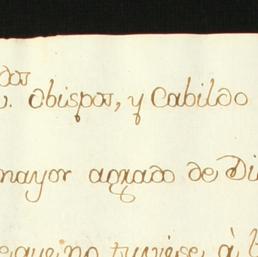 Obispos, y Cabildo
mayor agrado de Di
que no tuviese à